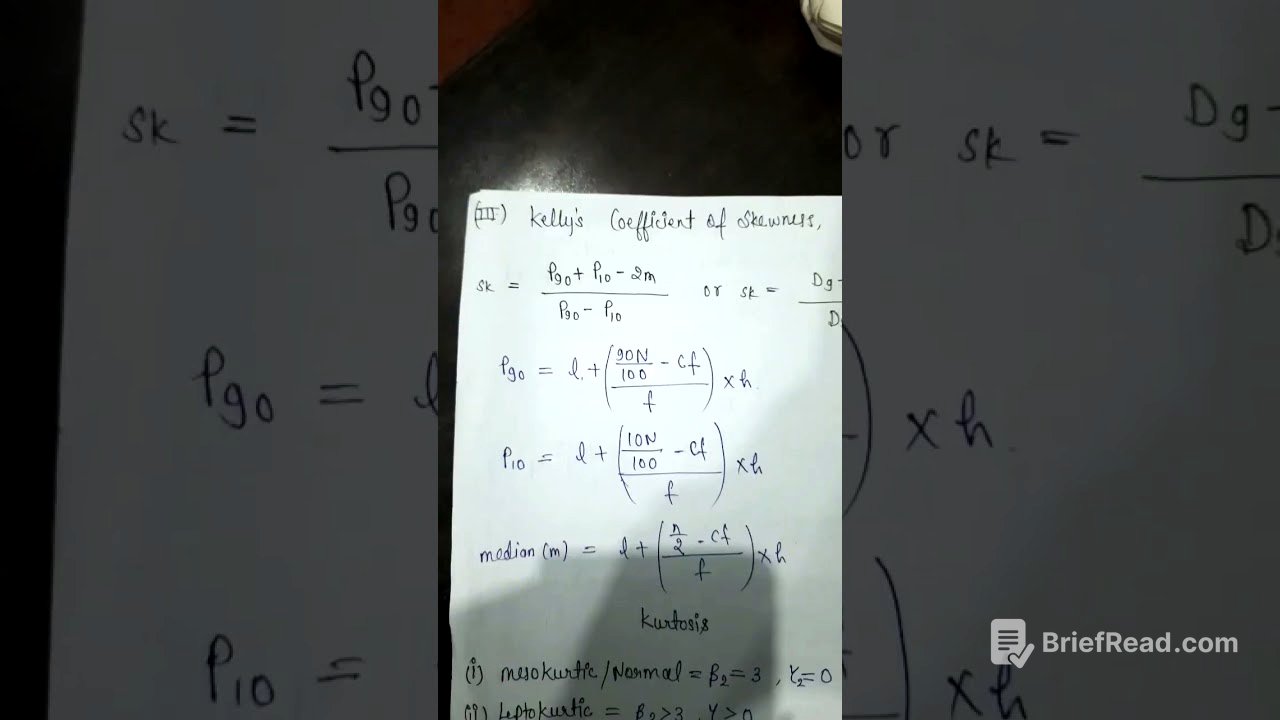 (III) Kelly's Coefficient of Skewness,
sk = P90 + P10 - 2m / P90 - P10 or sk = D9 -
P90 = l + (90N/100 - Cf / f) × h.
P10 = l + (10N/100 - Cf / f) × h
median (m) = l + (n/2 - Cf / f) × h
Kurtosis
(i) mesokurtic/Normal = β2 = 3 , γ2 = 0
(ii) Leptokurtic = β2 > 3 , γ > 0
sk = P90
P90
or sk = D9 -
P90 =
× h.
P10 =
× h
BriefRead.com